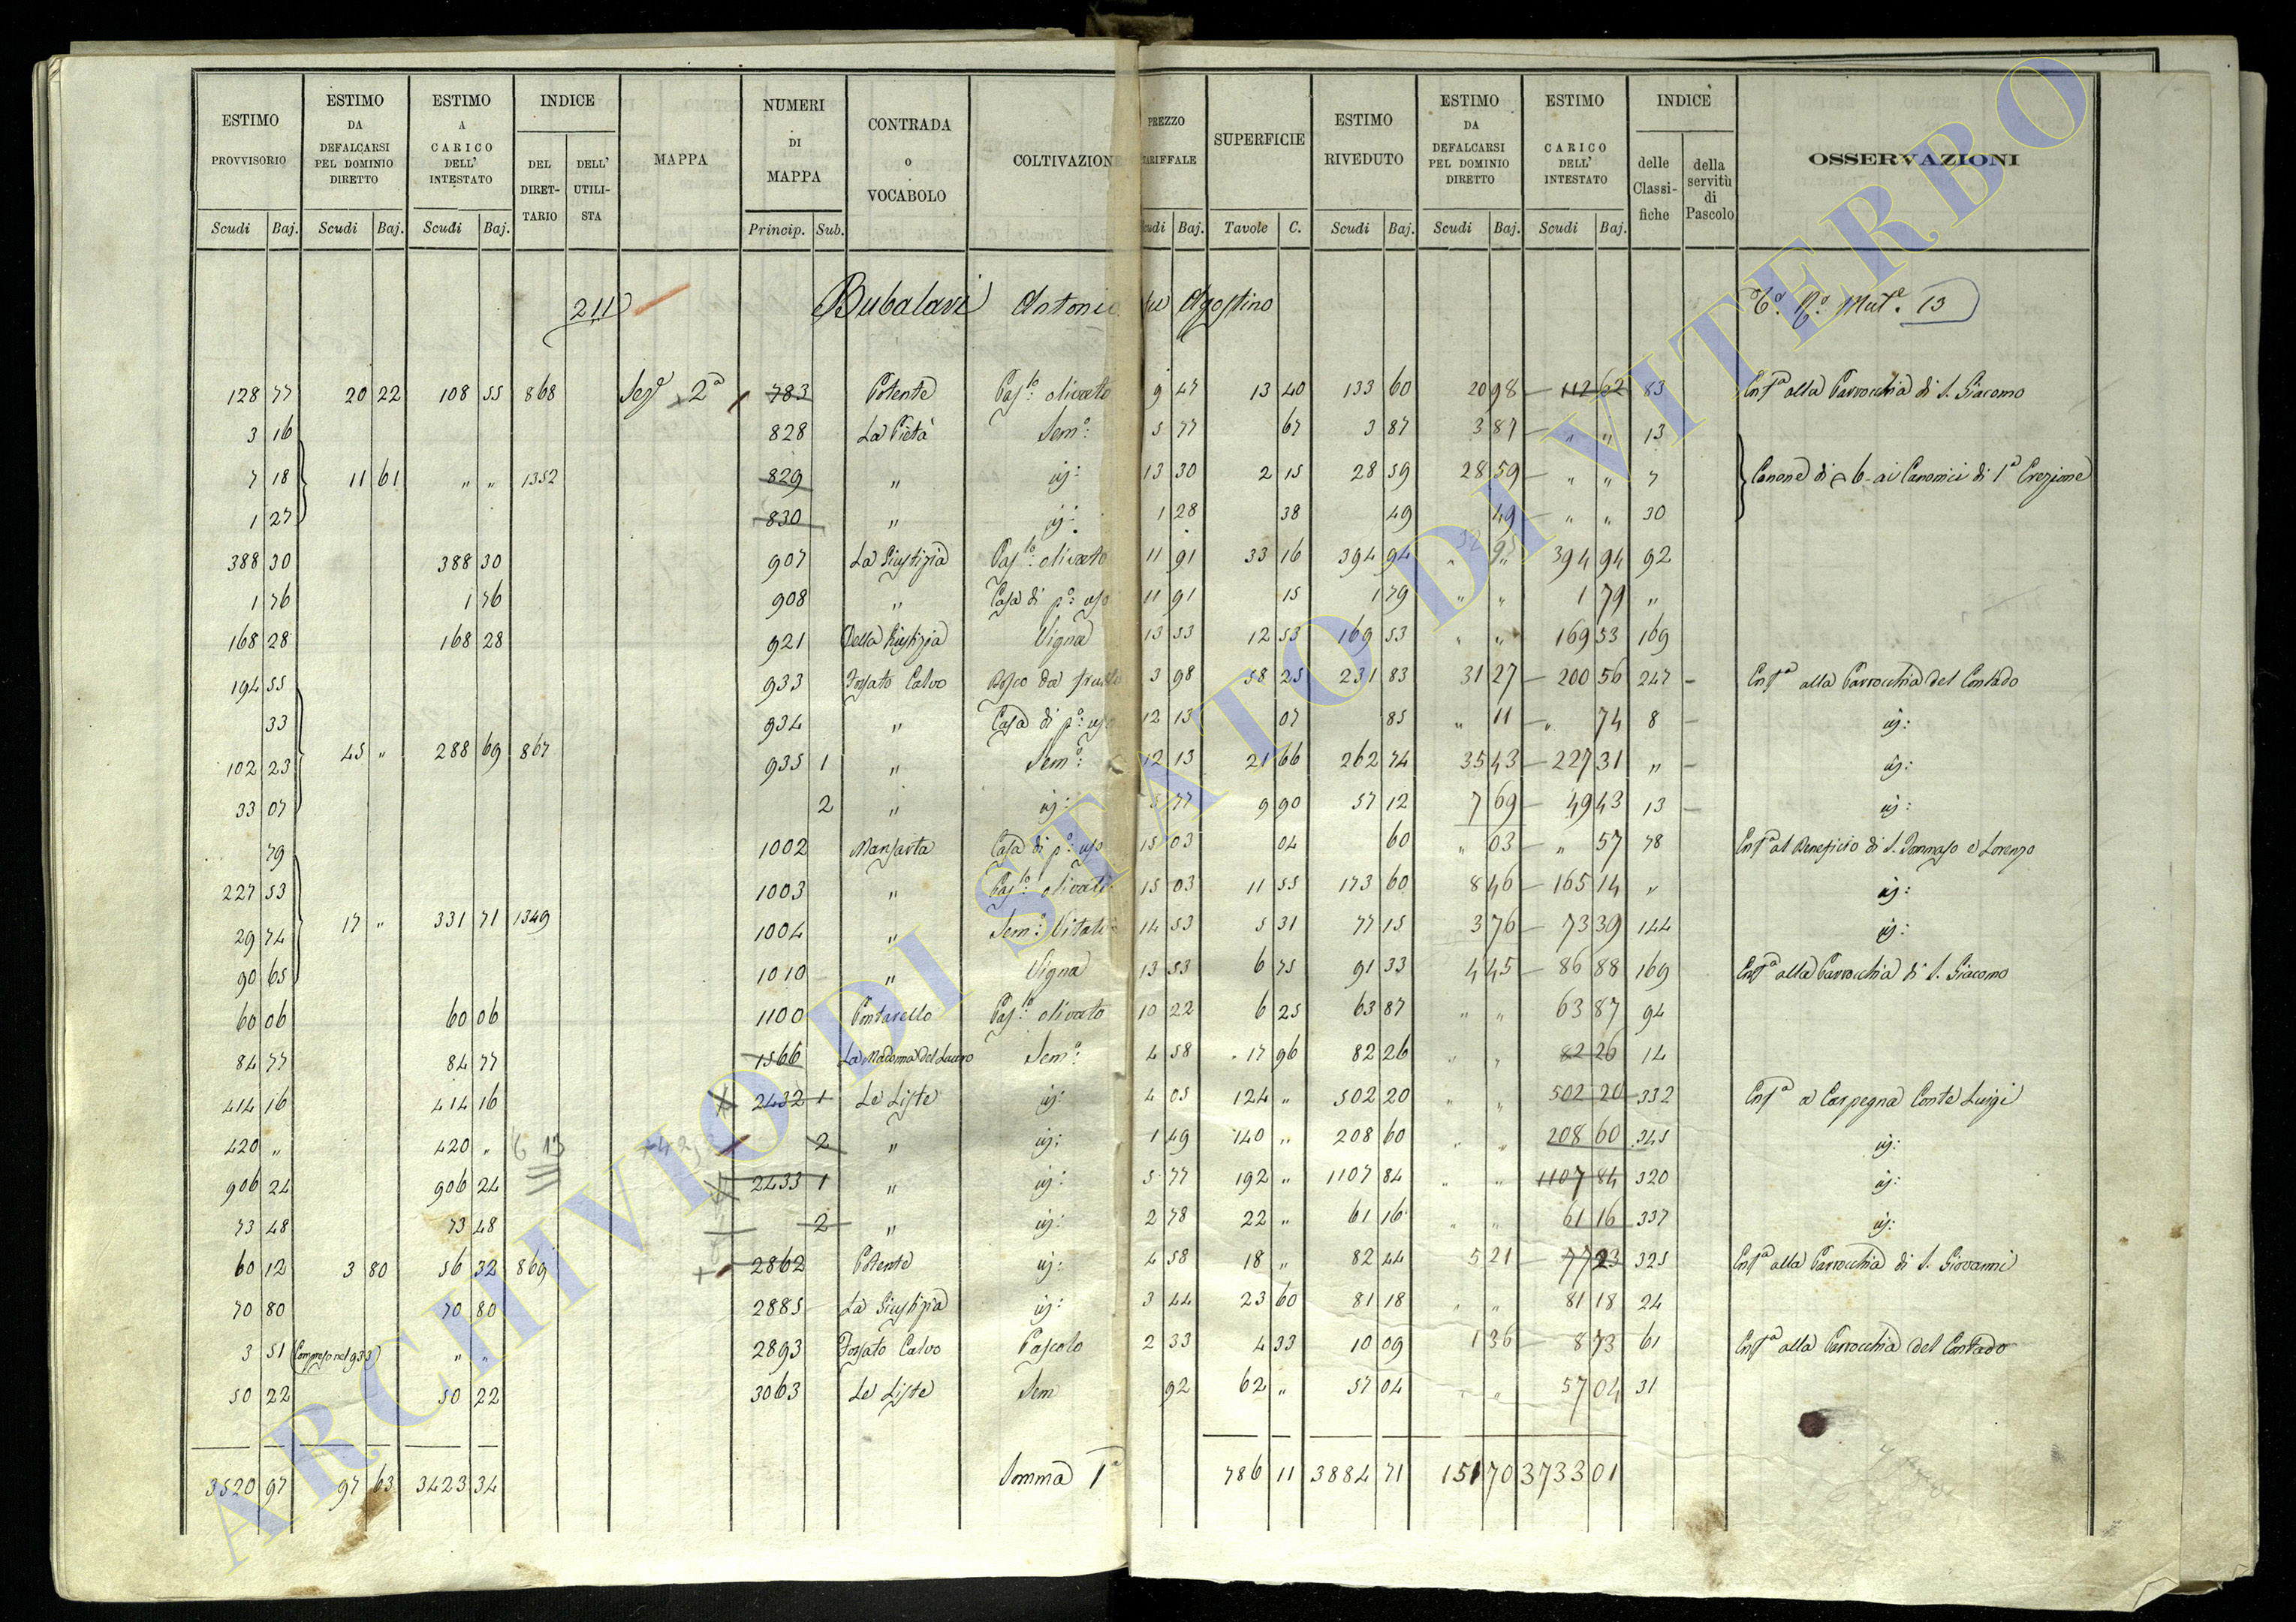 ESTIMO PROVVISORIO | ESTIMO DA DEFALCARSI PEL DOMINIO DIRETTO | ESTIMO A CARICO DELL' INTESTATO | INDICE | MAPPA | NUMERI DI MAPPA | CONTRADA o VOCABOLO | COLTIVAZIONE | PREZZO TARIFFALE | SUPERFICIE | ESTIMO RIVEDUTO | ESTIMO DA DEFALCARSI PEL DOMINIO DIRETTO | ESTIMO A CARICO DELL' INTESTATO | INDICE | OSSERVAZIONI
DEL DIRETTARIO | DELL' UTILISTA | delle Classifiche | della servitù di Pascolo
Scudi | Baj. | Scudi | Baj. | Scudi | Baj. | Princip. | Sub. | Scudi | Baj. | Tavole | C. | Scudi | Baj. | Scudi | Baj. | Scudi | Baj.
211 Bubalari Antonio fu Agostino 13
128 77 | 20 22 | 108 55 | 868 | Sez.e 2a | 783 | Potente | Pas.to olivato | 9 47 | 13 40 | 133 60 | 20 98 | 112 62 | 83 | Enf.a alla Parrocchia di S. Giacomo
3 16 | 828 | La Pietà | Sem.o | 5 77 | 67 | 3 87 | 3 87 | " " | 13
7 18 | 11 61 | " " | 1352 | 829 | " | id: | 13 30 | 2 15 | 28 59 | 28 59 | " " | 7 | Canone di 6 ai Canonici di 1a Erezione
1 27 | 830 | " | id: | 1 28 | 38 | 49 | 49 | " " | 30
388 30 | 388 30 | 907 | La Giustizia | Pas.to olivato | 11 91 | 33 16 | 394 94 | " " | 394 94 | 92
1 76 | 1 76 | 908 | " | Casa di p.o uso | 11 91 | 15 | 1 79 | " " | 1 79 | "
168 28 | 168 28 | 921 | Della Giustizia | Vigna | 13 53 | 12 53 | 169 53 | " " | 169 53 | 169
194 55 | 933 | Fossato Calvo | Bosco da frutto | 3 98 | 58 25 | 231 83 | 31 27 | 200 56 | 247 | Enf.a alla Parrocchia del Contado
33 | 934 | " | Casa di p.o uso | 12 13 | 07 | 85 | " 11 | " 74 | 8 | id:
102 23 | 45 " | 288 69 | 867 | 935 1 | " | Sem.o | 12 13 | 21 66 | 262 74 | 35 43 | 227 31 | " | id:
33 07 | 2 | " | id: | 5 77 | 9 90 | 57 12 | 7 69 | 49 43 | 13 | id:
79 | 1002 | Mansarta | Casa di p.o uso | 15 03 | 04 | 60 | " 03 | " 57 | 78 | Enf.a al Beneficio di S. Tommaso e Lorenzo
227 53 | 1003 | " | Pas.to olivato | 15 03 | 11 55 | 173 60 | 8 46 | 165 14 | " | id:
29 74 | 17 " | 331 71 | 1349 | 1004 | " | Sem.o Vitato | 14 53 | 5 31 | 77 15 | 3 76 | 73 39 | 144 | id:
90 65 | 1010 | " | Vigna | 13 53 | 6 75 | 91 33 | 4 45 | 86 88 | 169 | Enf.a alla Parrocchia di S. Giacomo
60 06 | 60 06 | 1100 | Pontarello | Pas.to olivato | 10 22 | 6 25 | 63 87 | " " | 63 87 | 94
84 77 | 84 77 | 1566 | La Madonna del Lauro | Sem.o | 4 58 | 17 96 | 82 26 | " " | 82 26 | 14
414 16 | 414 16 | 2432 1 | Le Liste | id: | 4 05 | 124 " | 502 20 | " " | 502 20 | 332 | Enf.a a Carpegna Conte Luigi
420 " | 420 " | 2 | " | id: | 1 49 | 140 " | 208 60 | " " | 208 60 | 345 | id:
906 24 | 906 24 | 2433 1 | " | id: | 5 77 | 192 " | 1107 84 | " " | 1107 84 | 320 | id:
73 48 | 73 48 | 2 | " | id: | 2 78 | 22 " | 61 16 | " " | 61 16 | 337 | id:
60 12 | 3 80 | 56 32 | 869 | 2862 | Potente | id: | 4 58 | 18 " | 82 44 | 5 21 | 77 23 | 325 | Enf.a alla Parrocchia di S. Giovanni
70 80 | 70 80 | 2885 | La Giustizia | id: | 3 44 | 23 60 | 81 18 | " " | 81 18 | 24
3 51 | (Compreso nel 933) | " " | 2893 | Fossato Calvo | Pascolo | 2 33 | 4 33 | 10 09 | 1 36 | 8 73 | 61 | Enf.a alla Parrocchia del Contado
50 22 | 50 22 | 3063 | Le Liste | Sem | 92 | 62 " | 57 04 | " " | 57 04 | 31
3520 97 | 97 63 | 3423 34 | Somma 1a | 786 11 | 3884 71 | 151 70 | 3733 01
ARCHIVIO DI STATO DI VITERBO